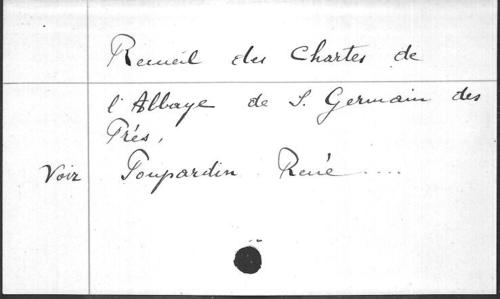 Recueil des Chartes de
l'Abbaye de S. Germain des
Prés,
Voir Poupardin René ....